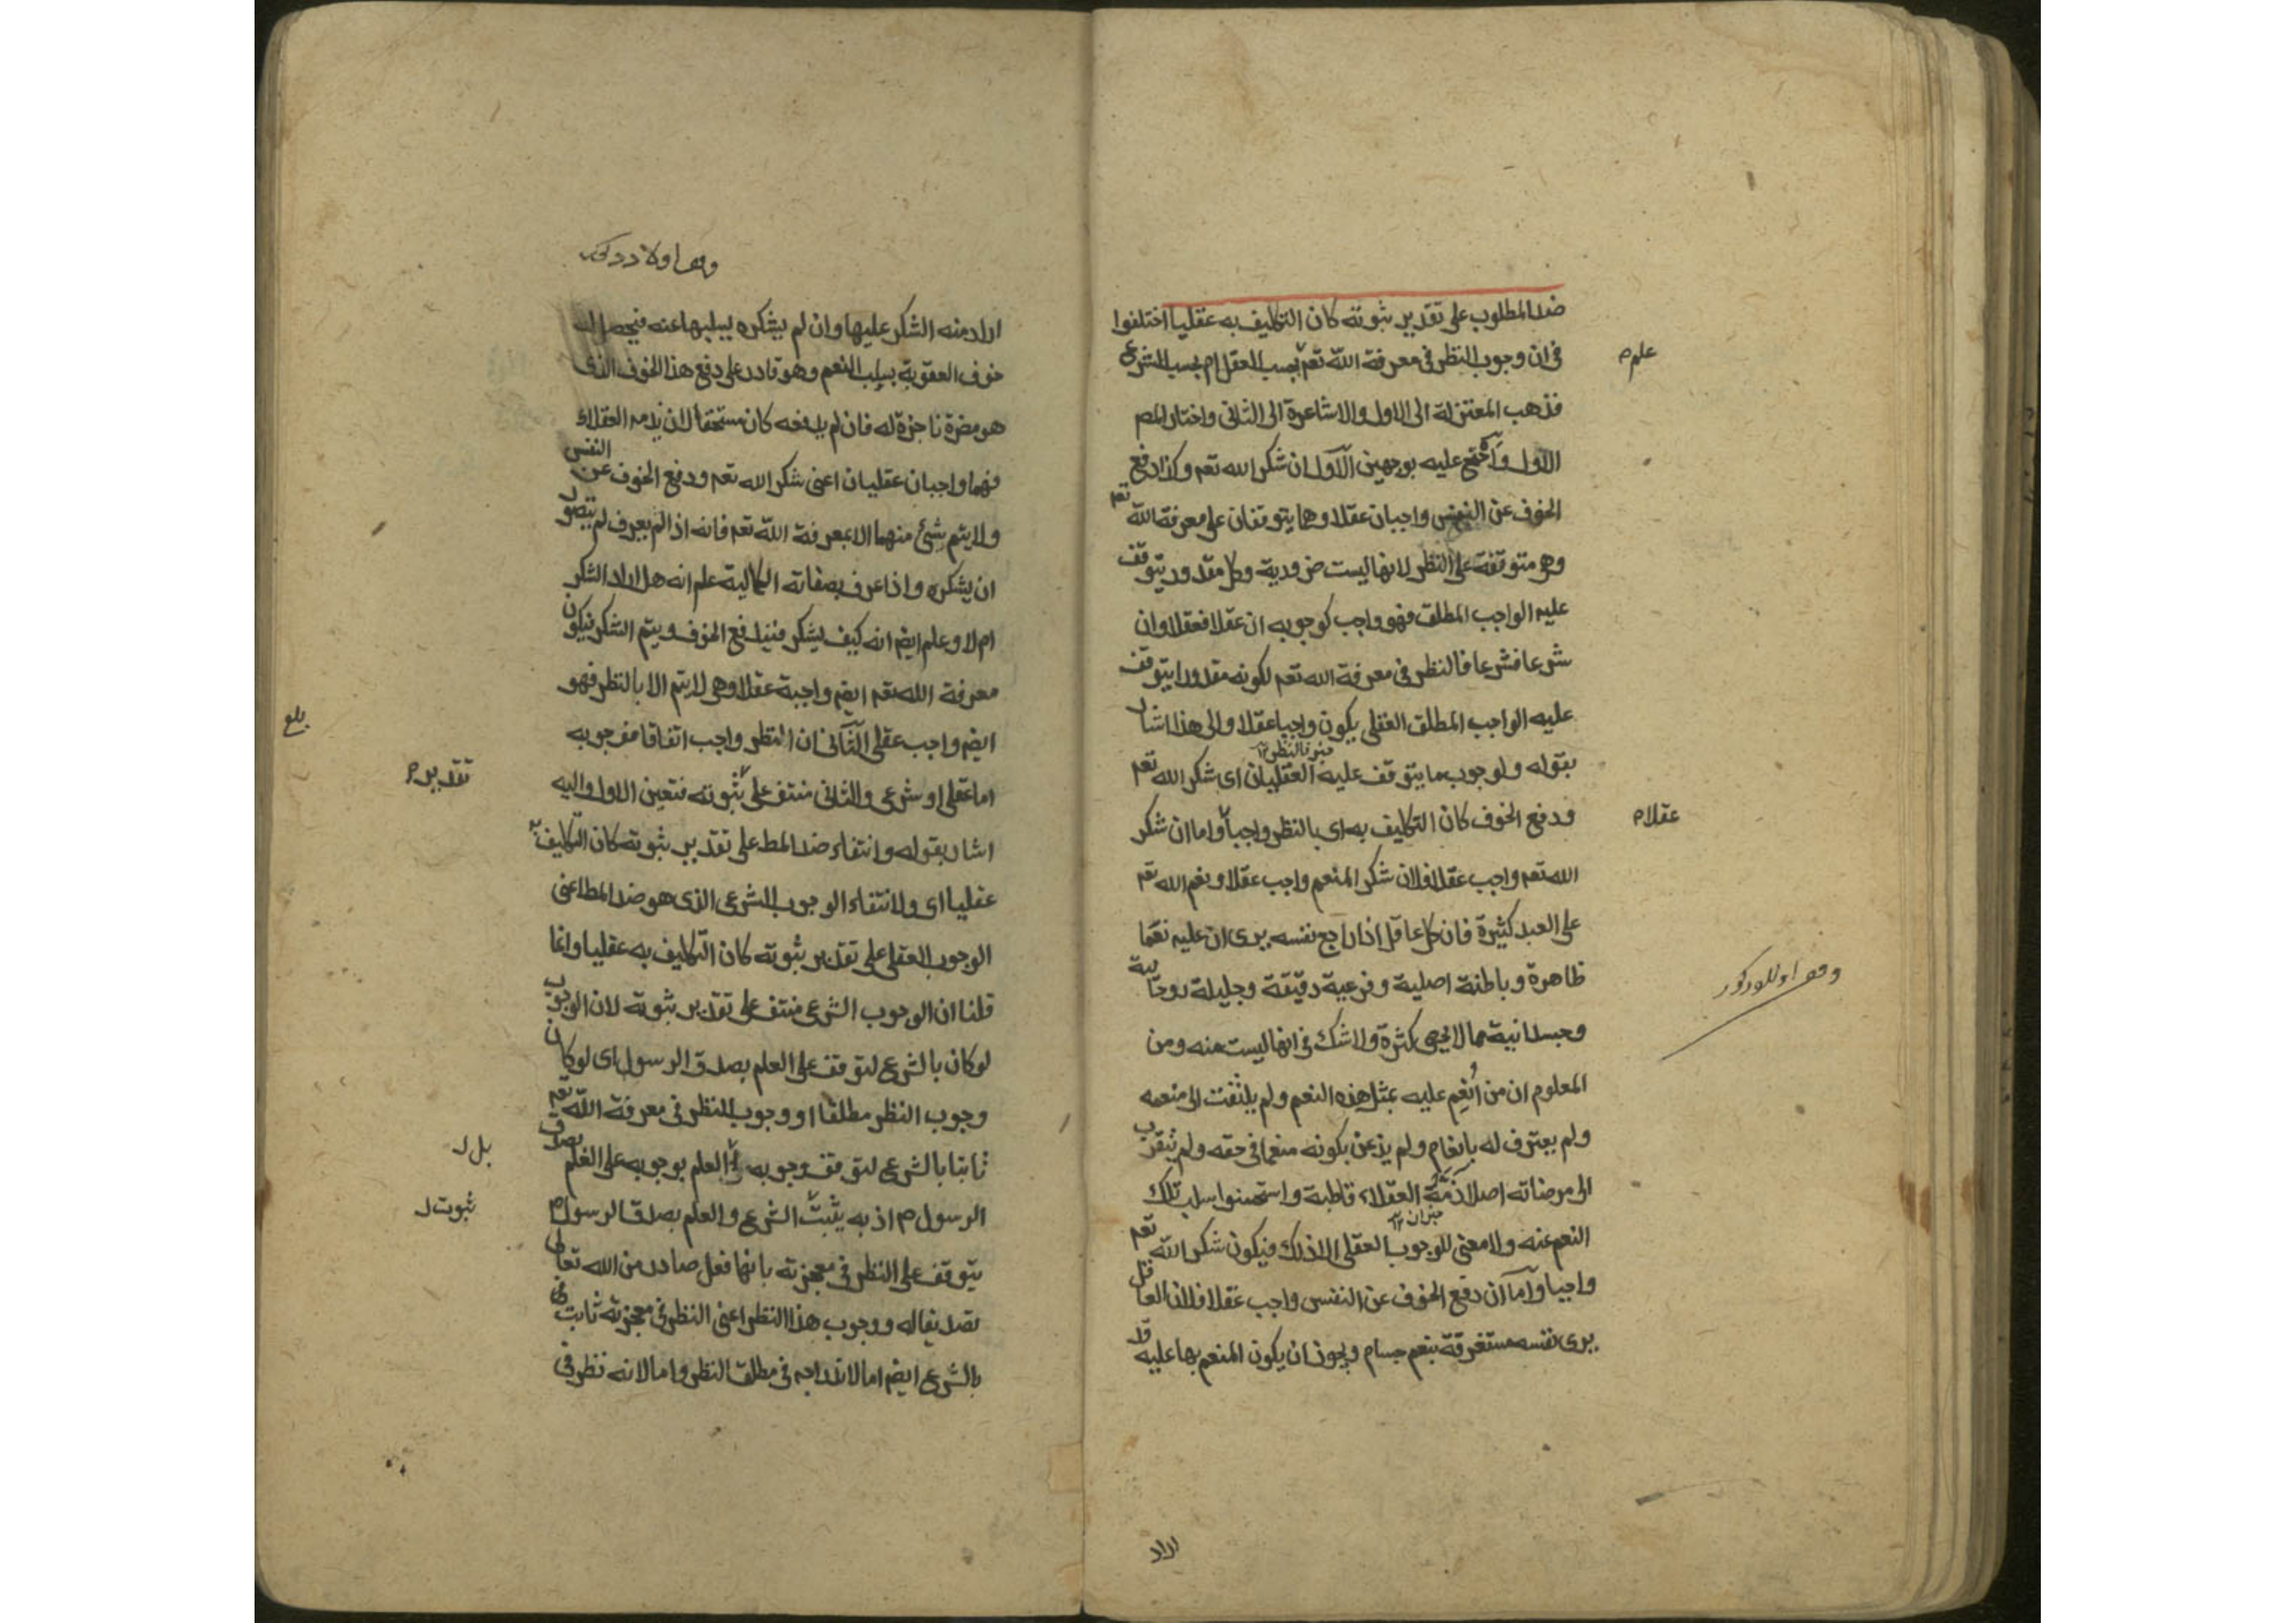 ضد المطلوب على تقدير ثبوته كان التكليف به عقليا اختلفوا
فى ان وجوب النظر فى معرفة الله تعم بحسب العقل ام بحسب الشرع
فذهب المعتزلة الى الاول والاشاعرة الى الثانى واختار المص
الاول واحتج عليه بوجهين الاول ان شكر الله تعم وكذا دفع
الخوف عن النفس واجبان عقلا وهما يتوقفان على معرفة الله تعم
وهى متوقفة على النظر لانها ليست ضرورية وكل مقدور يتوقف
عليه الواجب المطلق فهو واجب كوجوبه ان عقلا فعقلا وان
شرعا فشرعا فالنظر فى معرفة الله تعم لكونه مقدورا يتوقف
عليه الواجب المطلق العقلى يكون واجبا عقلا والى هذا اشار
بقوله ولوجوب ما يتوقف عليه العقليان اى شكر الله تعم
ودفع الخوف كان التكليف به اى بالنظر واجبا واما ان شكر
الله تعم واجب عقلا فلان شكر المنعم واجب عقلا ونعم الله تعم
على العبد كثيرة فان كل عاقل اذا راجع نفسه يرى ان عليه نعما
ظاهرة وباطنة اصلية وفرعية دقيقة وجليلة روحانية
وجسدانية مما لا يحصى كثرة ولا شك فى انها ليست منه ومن
المعلوم ان من أنعم عليه بمثل هذه النعم ولم يلتفت الى منعمه
ولم يعترف له بانعام ولم يذعن بكونه منعما فى حقه ولم يتقرب
الى مرضاته اصلا ذمه العقلاء قاطبة واستحسنوا سلب تلك
النعم عنه ولا معنى للوجوب العقلى الا ذلك فيكون شكر الله تعم
واجبا واما ان دفع الخوف عن النفس واجب عقلا فلان العاقل
يرى نفسه مستغرقة بنعم جسام ويجوز ان يكون المنعم بها عليه قد
علم م
عقلا م
اراد
اراد منه الشكر عليها وان لم يشكره يسلبها عنه فيحصل له
خوف العقوبة بسلب النعم وهو قادر على دفع هذا الخوف الذى
هو مضرة ناجزة له فان لم يدفعه كان مستحقا لان يذمه العقلاء
فهما واجبان عقليان اعنى شكر الله تعم ودفع الخوف عن النفس
ولا يتم شئ منهما الا بمعرفة الله تعم فانه اذا لم يعرف لم يتصور
ان يشكره واذا عرف بصفاته الكمالية علم انه هل اراد الشكر
ام لا وعلم ايضم انه كيف يشكر فيندفع الخوف ويتم الشكر فيكون
معرفة الله تعم ايضم واجبة عقلا وهى لا يتم الا بالنظر فهو
ايضم واجب عقلى الثانى ان النظر واجب اتفاقا فوجوبه
اما عقلى او شرعى والثانى منتف على ثبوته فتعين الاول واليه
اشار بقوله وانتفاء ضد المط على تقدير ثبوته كان التكليف به
عقليا اى ولانتفاء الوجوب الشرعى الذى هو ضد المط اعنى
الوجوب العقلى على تقدير ثبوته كان التكليف به عقليا وانما
قلنا ان الوجوب الشرعى منتف على تقدير ثبوته لان الوجوب
لو كان بالشرع لتوقف على العلم بصدق الرسول اى لو كان
وجوب النظر مطلقا او وجوب النظر فى معرفة الله تعم
ثابتا بالشرع لتوقف وجوبه العلم بوجوبه على العلم بصدق
الرسول م اذ به يثبت الشرع والعلم بصدق الرسول م
يتوقف على النظر فى معجزته بانها فعل صادر من الله تعالى
تصديقا له ووجوب هذا النظر اعنى النظر فى معجزته ثابت
بالشرع ايضم اما لاندراجه فى مطلق النظر واما لانه نظر فى
بلغ
تقدير م
بل ل
ثبوت ل